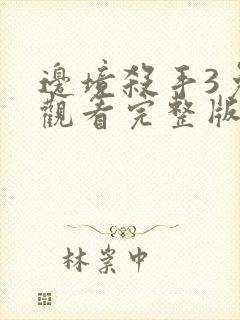 邊境殺手3免
觀看完整版
林崇中